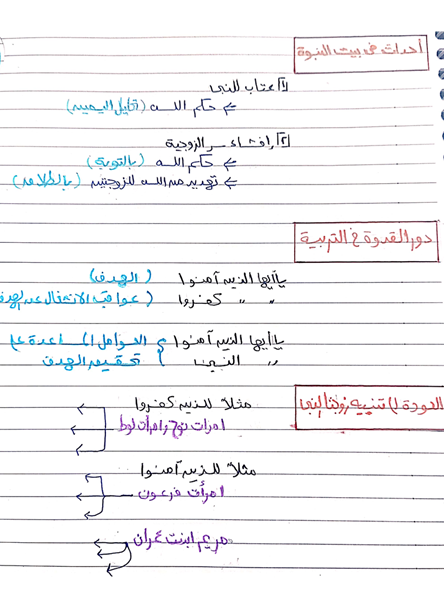 أحداث في بيت النبوة
١) عتاب للنبي
حكم الله (تحليل اليمين)
٢) إفشاء سر الزوجية
حكم الله (بالتوبة)
تهديد من الله للزوجتين (بالطلاق)
دور القدوة في التربية
يا أيها الذين آمنوا (الهدف)
" " كفروا (عواقب الانشغال عن الهدف
يا أيها الذين آمنوا } العوامل المساعدة على
" النبي } تحقيق الهدف
العودة لتنبيه زوجتا النبي
مثلاً للذين كفروا
امرات نوح وامرأت لوط
مثلاً للذين آمنوا
امرأت فرعون
مريم ابنت عمران